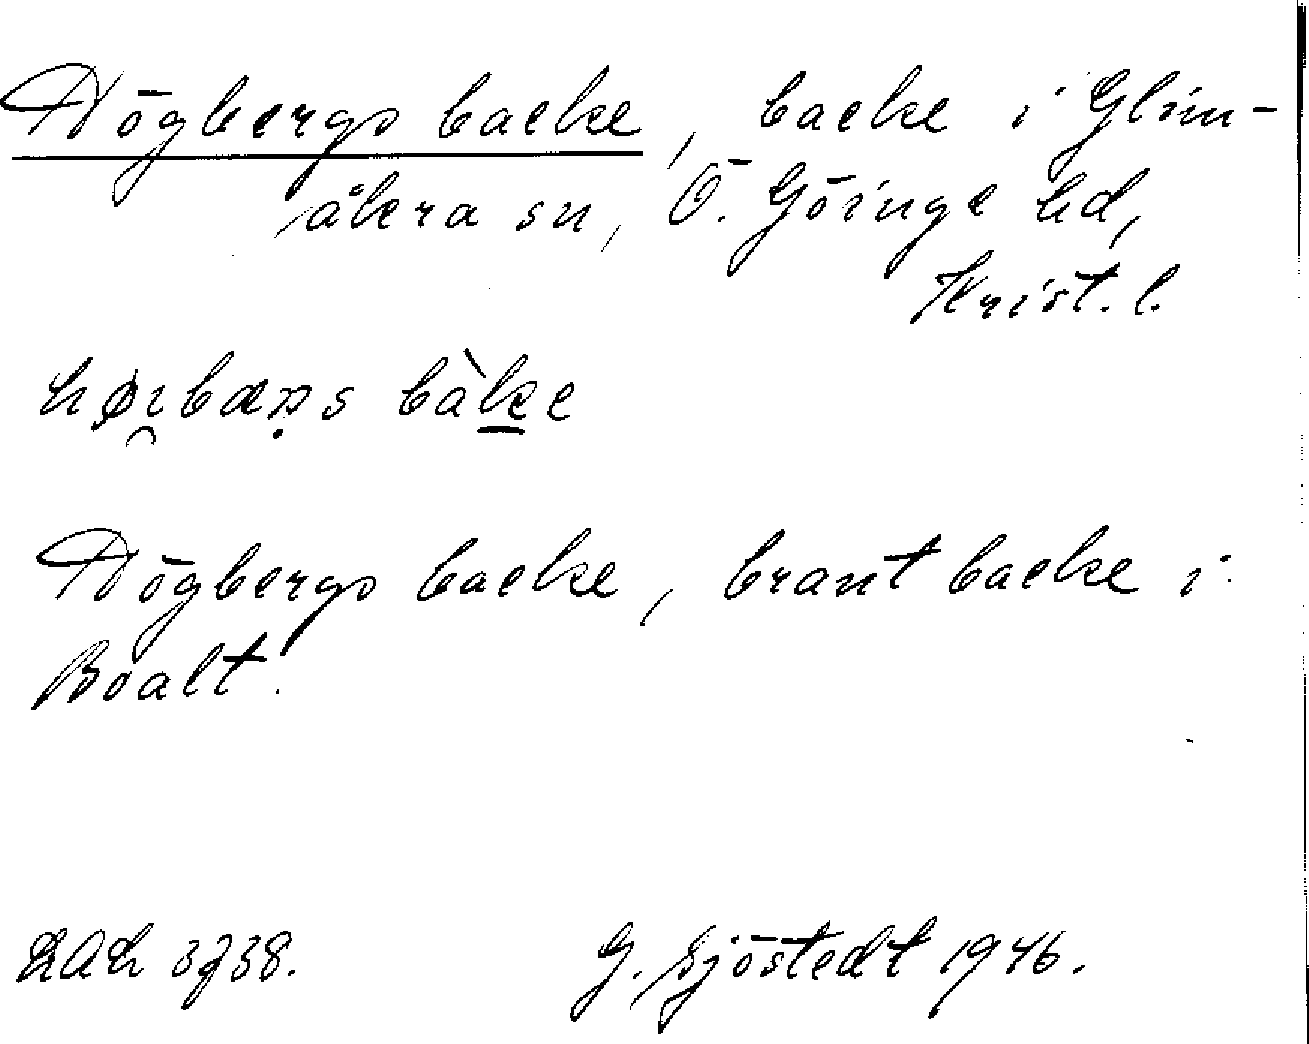 Högbergs backe, backe i Glim-
åkra sn, Ö. Göinge hd,
Krist. l.
bàke
Högbergs backe, brant backe i
Boalt.
LAL 3738. G. Sjöstedt 1946.